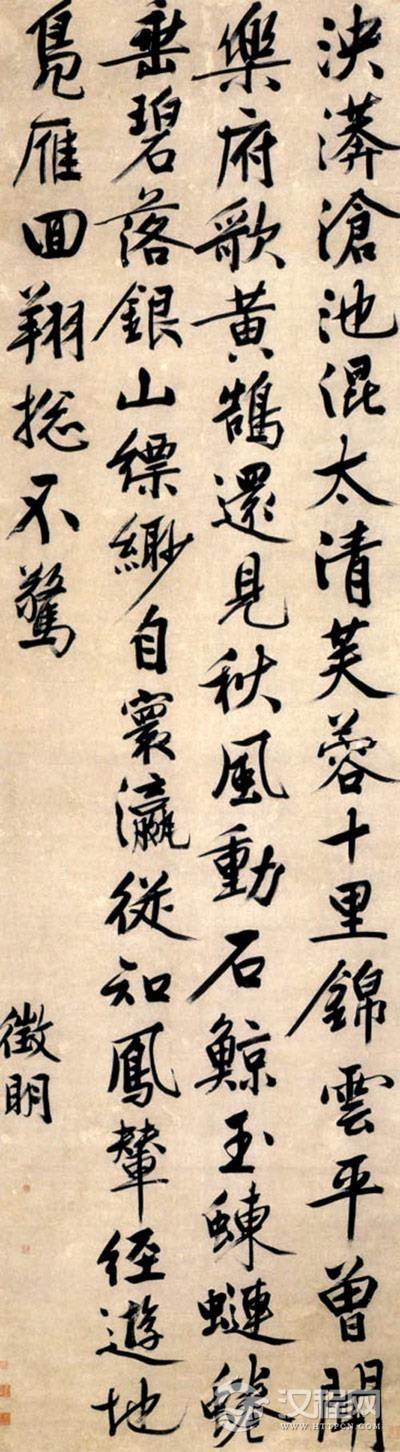 泱漭滄池混太清芙蓉十里錦雲平曾聞
樂府歌黄鵠還見秋風動石鯨玉蝀蜷
垂碧落銀山縹緲自寰瀛從知鳳輦經遊地
鳧雁回翔揔不驚
徵明
汉程网
HTTPCN.COM